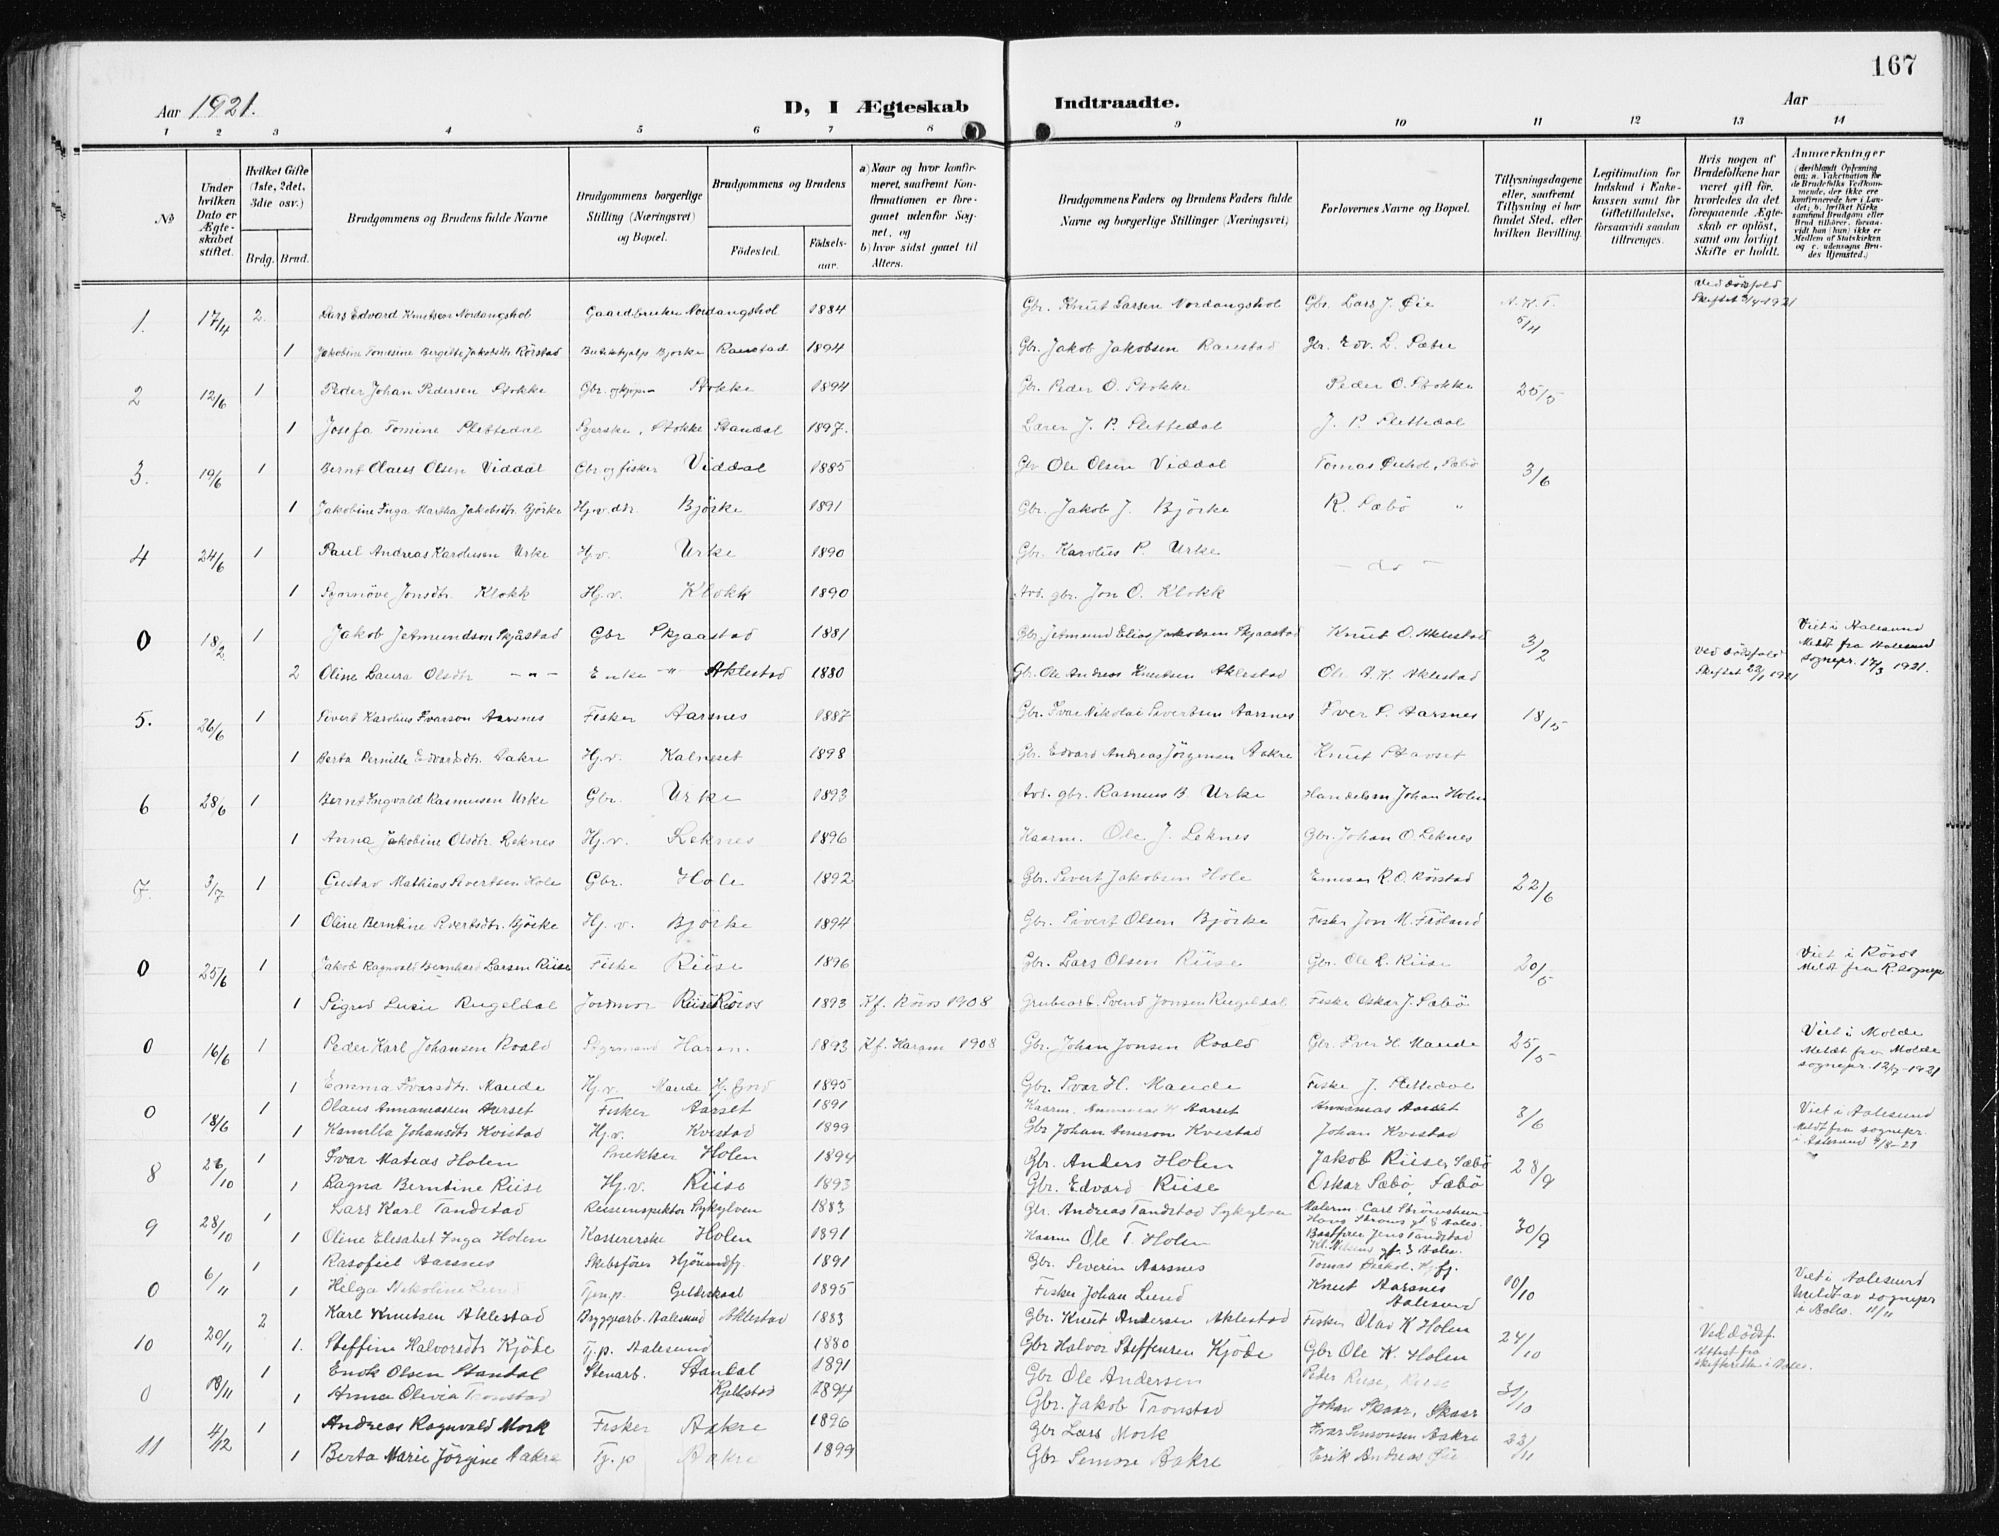 167
Aar 1921.
D, I Ægteskab Indtraadte.
Aar
1 2 3 4 5 6 7 8 9 10 11 12 13 14
№
Under hvilken Dato er Ægteskabet stiftet.
Hvilket Gifte (1ste, 2det, 3die osv.)
Brdg. Brud.
Brudgommens og Brudens fulde Navne
Brudgommens borgerlige Stilling (Næringsvei) og Bopæl.
Brudgommens og Brudens
Fødested. Fødselsaar.
a) Naar og hvor konfirmeret, saafremt Konfirmationen er foregaaet udenfor Sognet, og
b) hvor sidst gaaet til Alters.
Brudgommens Faders og Brudens Faders fulde Navne og borgerlige Stillinger (Næringsvei)
Forlovernes Navne og Bopæl.
Tillysningsdagene eller, saafremt Tillysning ei har fundet Sted, efter hvilken Bevilling.
Legitimation for Indskud i Enkekassen samt for Giftetilladelse, forsaavidt saadan tiltrænges.
Hvis nogen af Brudefolkene har været gift før, hvorledes da det foregaaende Ægteskab er opløst, samt om lovligt Skifte er holdt.
Anmærkninger
1. 17/4 2. Lars Edvard Knutsen Nordangshol Gaardbruker Nordangshol 1884 Gbr. Knut Larsen Nordangshol Gbr. Lars J. Øie 5/4 Ved dødsfald
1 Jakobine Tomesine Bergitte Jakobsdtr. Rörstad Butikhjelp Bjørke Ranstad 1894 Gbr. Jakob Jakobsen Ranstad Gbr. Edv. L. Sæter
2 12/6 1 Peder Johan Pedersen Stokke Gbr. Stokke 1894 Gbr. Peder O. Stokke Peder O. Stokke 25/5
1 Josefa Tomine Slettedal Syerske, Stokke Standal 1897. Lærer J. P. Slettedal J. P. Slettedal
3. 19/6 1 Bernt Claus Olsen Viddal Gbr og fisker Viddal 1885 Gbr Ole Olsen Viddal Tomas Øiehol, Sæbø 3/6
1 Jakobine Inga Martha Jakobsdtr. Bjørke Hj.v. dtr. Bjørke 1891 Gbr. Jakob J. Bjørke R. Sæbö "
4 24/6 1 Paul Andreas Karolusen Urke Hj.v. Urke 1890 Gbr. Karolus P. Urke - do -
1 Synnöve Jonsdtr. Klokk Hj.v. Klokk 1890 Avd. gbr. Jon O. Klokk
0 18/2 1 Jakob Jetmundson Skjåstad Gbr Skjaastad 1881 Gbr Jetmund Elias Jakobsen Skjaastad Knut O. Aklestad 3/2 Viet i Aalesund
2 Oline Laura Olsdtr - " - Enke - " - Aklestad 1880 Gbr. Ole Andreas Knutsen Aklestad Ole A. H. Aklestad Ved dødsfald Skiftet 22/1 1921 Meldt fra Aalesund sognepr. 17/3 1921.
5. 26/6 1 Sivert Karolius Ivarson Aarsnes Fisker Aarsnes 1887 Gbr. Ivar Nikolai Sivertsen Aarsnes Iver S. Aarsnes 18/5
1 Berta Pernille Edvardsdtr. Aakre Hj.v. Kalneset 1898 Gbr. Edvard Andreas Jörgensen Aakre Knut Stavset
6 28/6 1 Bernt Ingvald Rasmusen Urke Gbr. Urke 1893 Avd. gbr. Rasmus B. Urke Handelsm Johan Holen
1 Anna Jakobine Olsdtr. Leknes Hj.v. Leknes 1896 Kaarm. Ole J. Leknes Gbr. Johan O. Leknes
7. 3/7 1 Gustav Mathias Sivertsen Hole Gbr. Hole 1892 Gbr. Sivert Jakobsen Hole R. O. Rörstad 22/6
1 Oline Berntine Sivertsdtr. Bjørke Hj. v. Bjørke 1894 Gbr. Sivert Olsen Bjørke Fisker Jon M. Fröland
0 25/6 1 Jakob Ragnvald Bernhard Larsen Riise Fisker Riise 1896 Gbr. Lars Olsen Riise Gbr. Ole L. Riise 20/5 Viet i Röros
1 Sigrid Lucie Rugeldal Jordmor Riise Röros 1893 Kf. Röros 1908 Grubearb. Svend Jonsen Rugeldal Fisker Oskar J. Sæbø Meldt fra R sognepr
0 16/6 1 Peder Karl Johansen Roald Styrmand Haram 1893 Kf. Haram 1908 Gbr. Johan Jonsen Roald Gbr. Iver H. Maude 25/5 Viet i Molde
1 Emma Ivarsdtr. Maude Hj.v. Maude Hj.fjord 1895 Gbr. Ivar H. Maude Fisker J. Slettedal Meldt fra Molde sognepr. 12/7-1921
0 18/6 1 Olaus Annaniassen Aarset Fisker Aarset 1891 Kaarm. Annanias H Aarset Annanias Aarset 3/6 Viet i Aalesund
1 Kamilla Johansdtr Kvistad Hj.v. Kvistad 1899 Gbr Johan Kvistad Johan Kvistad Meldt fra sognepr. i Aalesund 9/8-21
8 26/10 1 Ivar Matias Holen Snekker Holen 1894 Gbr. Anders Holen Jakob Riise, Sæbø 28/9
1 Ragna Berntine Riise Hj.v. Riise 1893 Gbr. Edvard Riise Oskar Sæbø, Sæbø
9 28/10 1 Lars Karl Tandstad Reiseinspektør Sykylven 1883 Gbr. Andreas Tandstad Sykylven Malerm. Carl 30/9
1 Oline Elisabet Inga Holen Kassererske Holen 1891 Kaarm Ole T. Holen Jens Tandstad
0 6/11 1 Rasofiel Aarsnes Skibsfører Hjörundfj. 1891 Gbr. Severin Aarsnes Tomas Øiehol. Hj.fj. 10/10 Viet i Aalesund
1 Helga Nikoline Lund Tjn.p. Gildeskaal 1895 Fisker Johan Lund Knut Aarsnes Aalesund Meldt av sognepr i Aales. 11/11
10 20/11 2 Karl Knutsen Aklestad Byggearb. Aalesund Aklestad 1883 Gbr. Knut Andersen Aklestad Fisker Olav K Holen 24/10 Ved dödsf.
1. Steffine Halvorsdtr Kjöde Tj.p. Aalesund 1880 Gbr Halvor Steffensen Kjöde Gbr Ole K. Holen Attest fra skifteretten i Aales.
0 1 Enok Olsen Standal Stenarb. Standal 1891 Gbr Ole Andersen Peder Riise, Riise 31/10
1 Anna Olivia Tronstad Kjellstad 1894 Gbr. Jakob Tronstad Johan Skaar, Skaar
11 4/12 1 Andreas Ragnvald Mork Fisker Aakre 1896 Gbr Lars Mork Ivar Simonsen Aakre 22/11
1 Berta Marie Jörgine Aakre Tj.p Aakre 1899 Gbr Simon Aakre Erik Andreas Øie